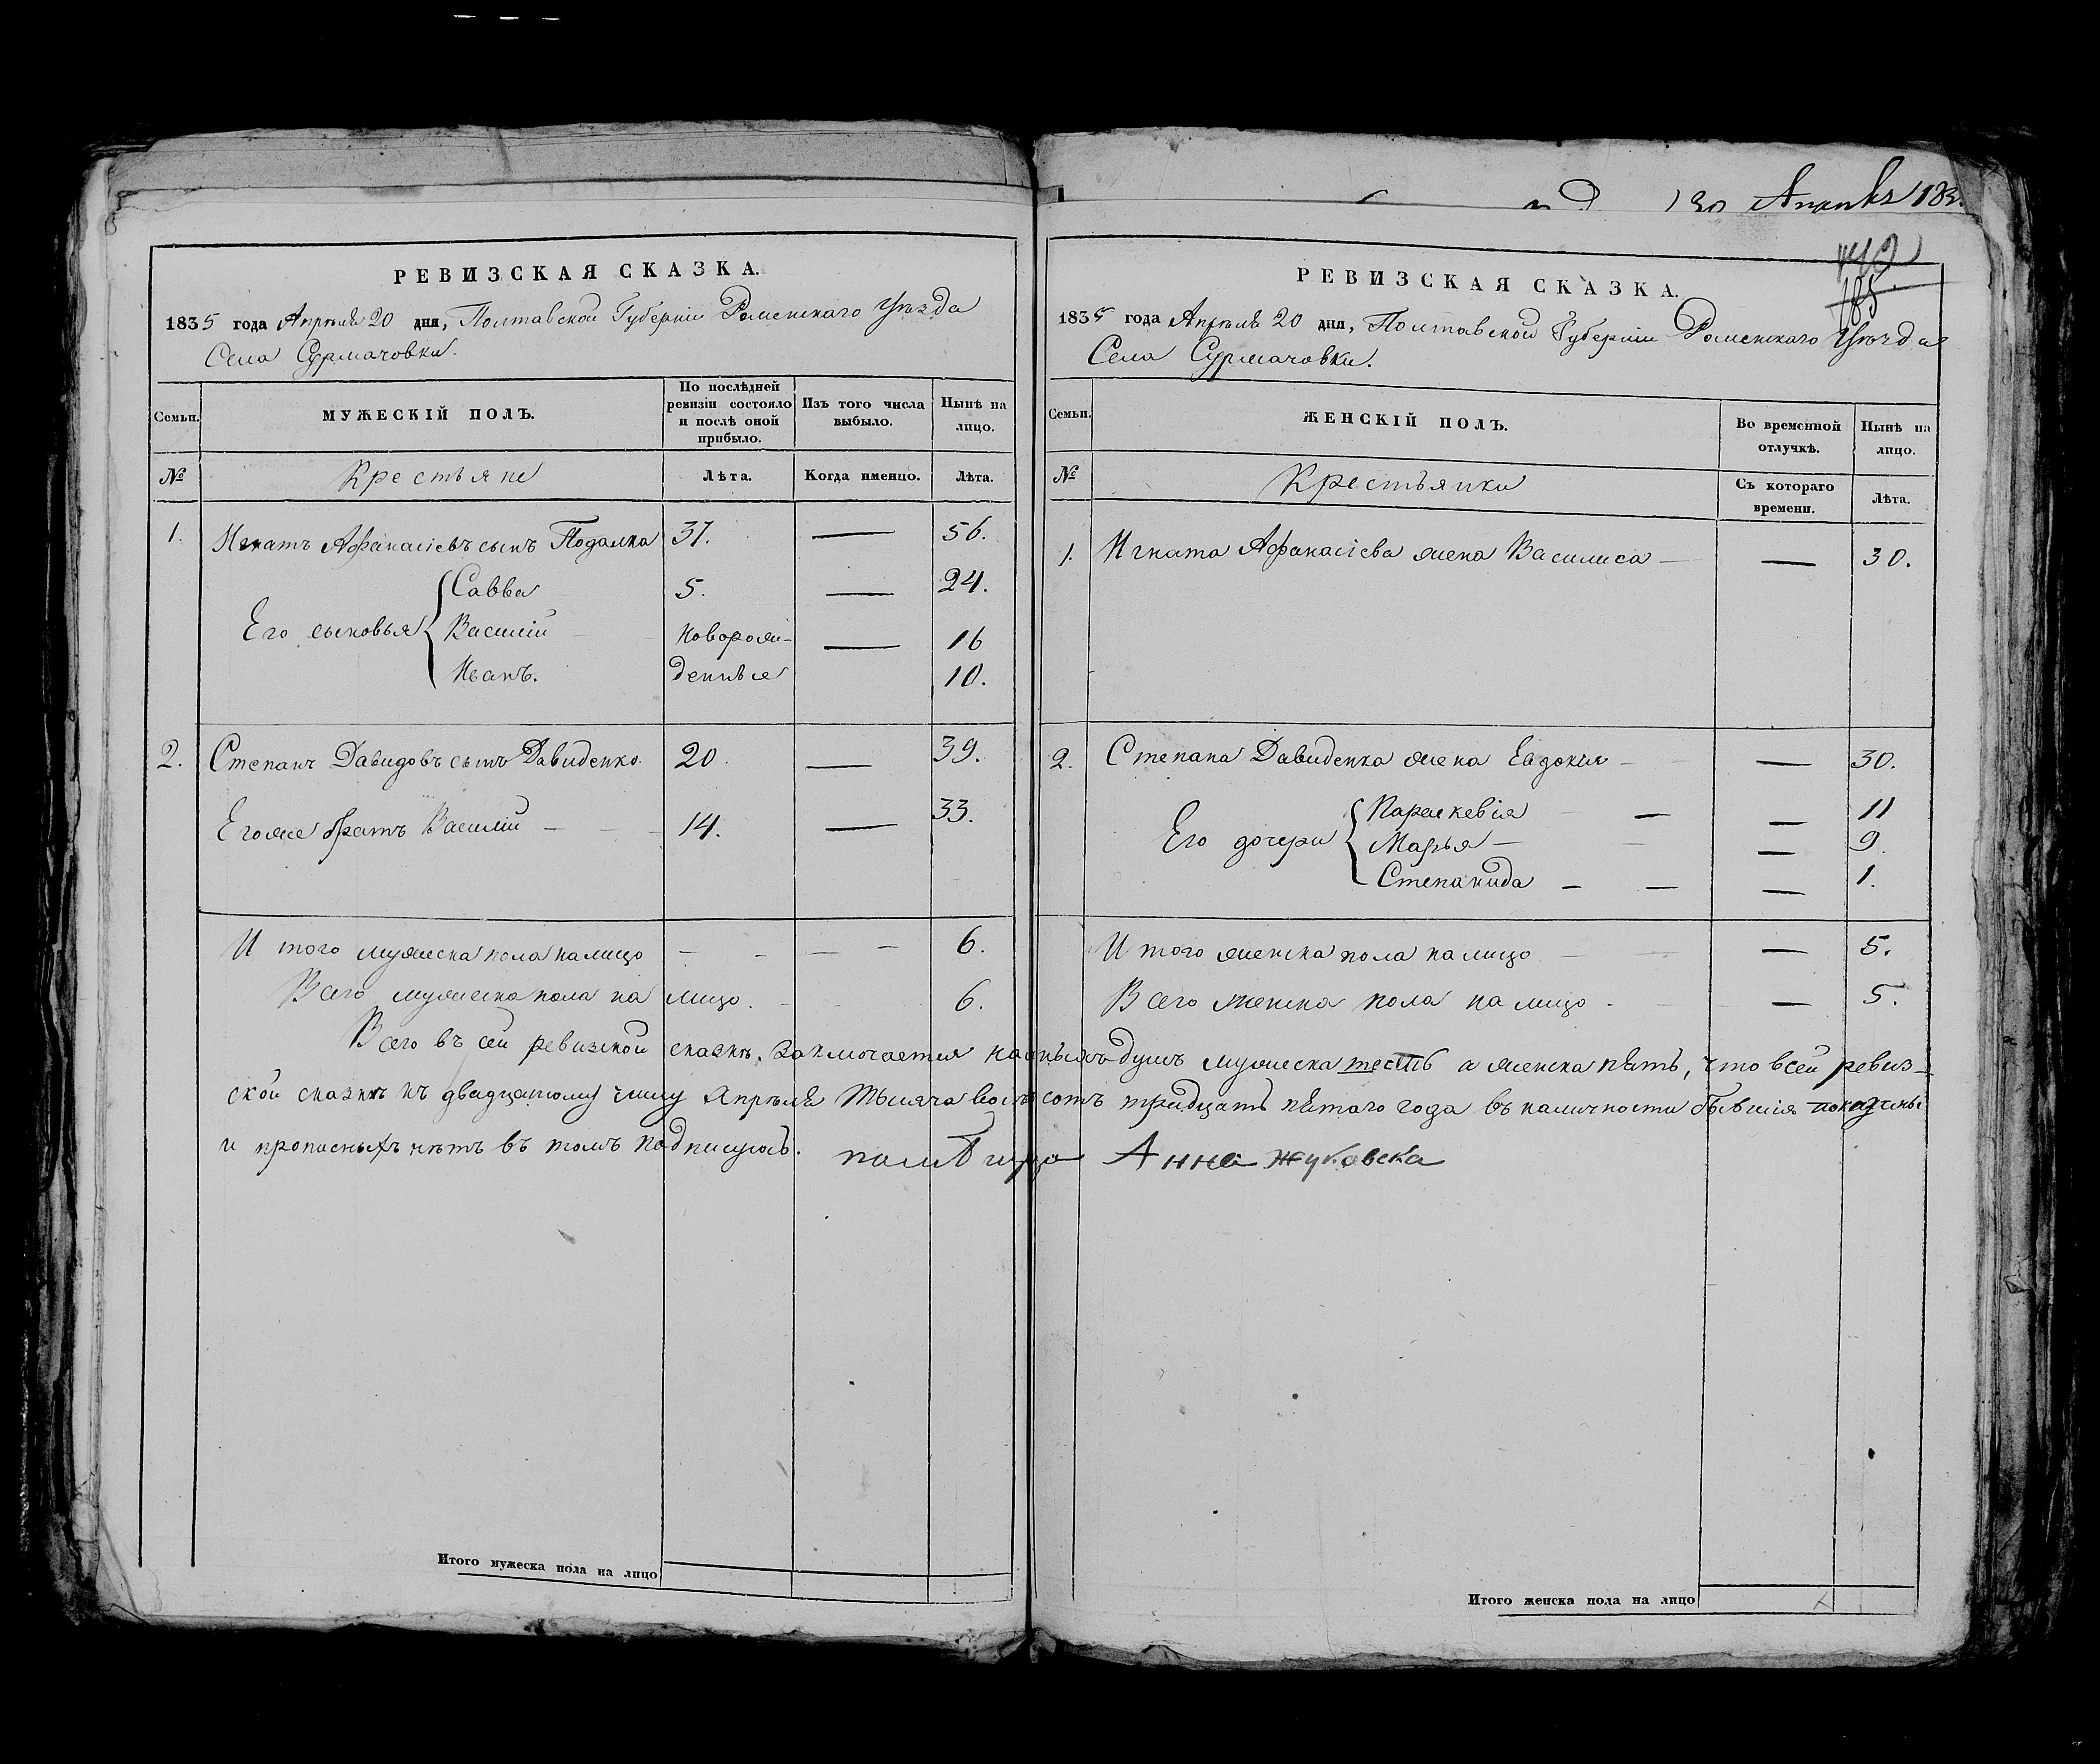 РЕВИЗСКАЯ СКАЗКА.
1835 года Апрѣля 20 дня, Полтавской Губерніи Роменскаго Уѣзда
Села Сурмачовки.
Семьи.
МУЖЕСКІЙ ПОЛЪ.
По послѣдней ревизіи состояло и послѣ оной прибыло.
Изъ того числа выбыло.
Нынѣ на лицо.
№ Крестьяне Лѣта. Когда именно. Лѣта.
1. Игнатъ Афанасіевъ сынъ Подалка 37. — 56.
Его сыновья { Савва 5. — 24.
Василій новорож- — 16
Иванъ. денные 10.
2. Степанъ Давидовъ сынъ Давиденко 20. — 39.
Его же братъ Василій — 14. — 33.
И того мужеска пола на лицо — - — — 6.
Всего мужеска пола на лицо. 6.
Итого мужеска пола на лицо
183
185
РЕВИЗСКАЯ СКАЗКА.
1835 года Апрѣля 20 дня, Полтавской Губерніи Роменскаго Уѣзда
Села Сурмачовки.
Семьи.
ЖЕНСКІЙ ПОЛЪ.
Во временной отлучкѣ.
Нынѣ на лицо.
№ Крестьянки Съ котораго времени. Лѣта.
1. Игната Афанасіева жена Василиса — — 30.
2. Степана Давиденка жена Евдокія — — 30.
Его дочери { Параскевія — — 11
Марья — — 9.
Степанида — — — 1.
И того женска пола на лицо — 5.
Всего женска пола на лицо - — 5.
Всего въ сей ревизской сказкѣ заключается наличныхъ душъ мужеска шесть а женска пять, что всей ревиз-
ской сказкѣ къ двадцатому числу Апрѣля тысяча восемсотъ тридцать пятаго года въ наличности бывшія показаны
и прописныхъ нѣтъ въ томъ подписуюсь. Анна Жуковска
Итого женска пола на лицо